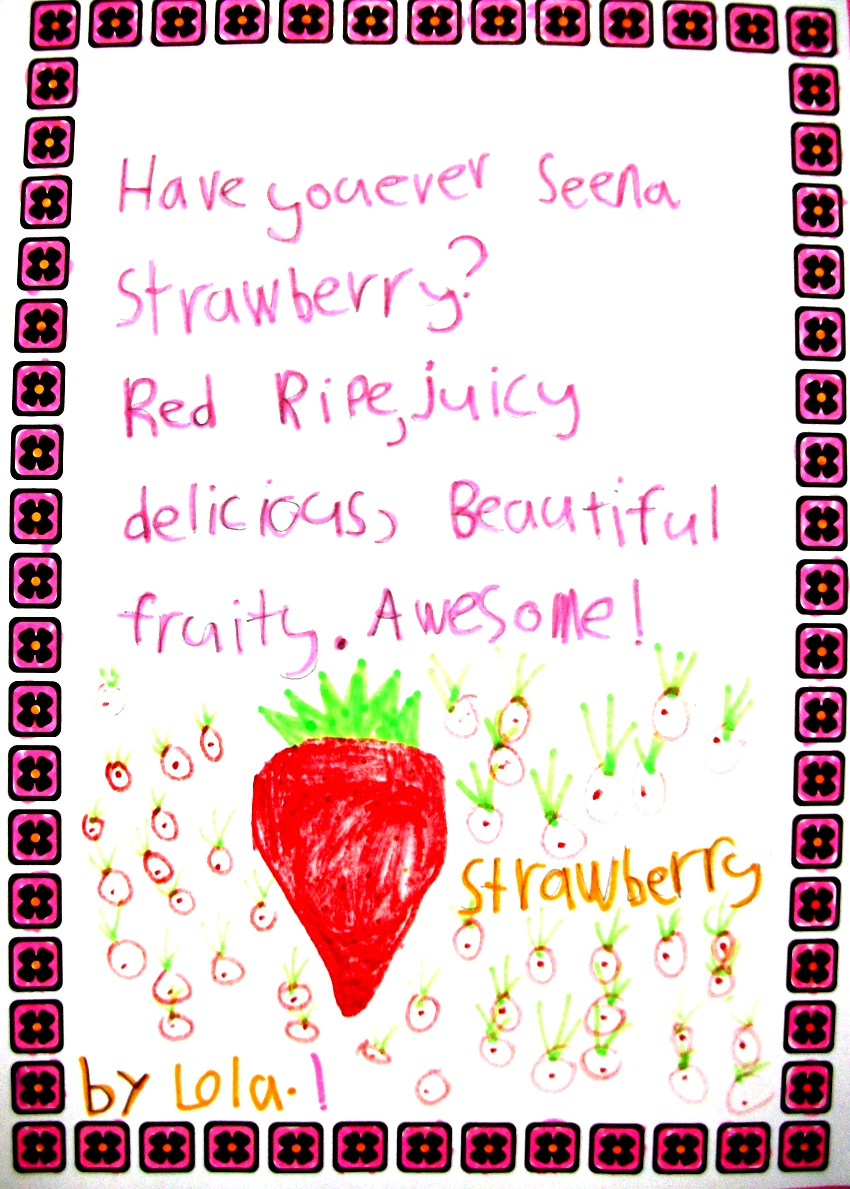 Have you ever Seen a
Strawberry?
Red Ripe, juicy
delicious, Beautiful
fruity. Awesome!
Strawberry
by Lola.!